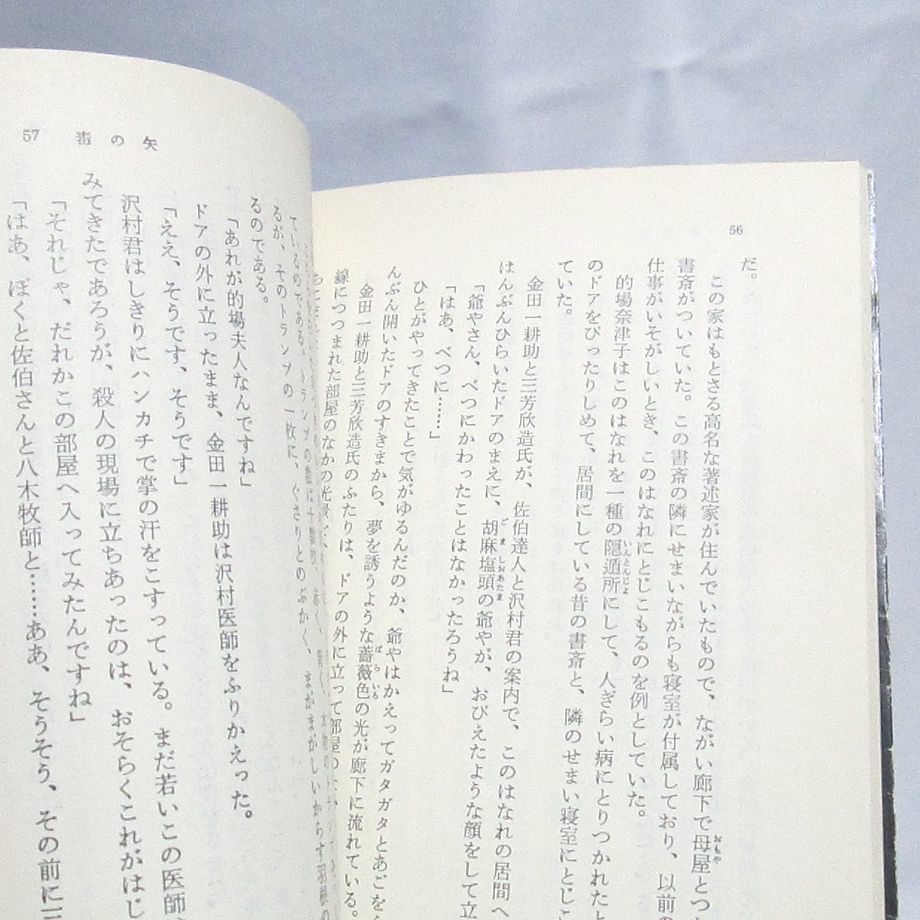 56
だ。
この家はもとさる高名な著述家が住んでいたもので、ながい廊下で母屋とつな
書斎がついていた。この書斎の隣にせまいながらも寝室が付属しており、以前の
仕事がいそがしいとき、このはなれにとじこもるのを例としていた。
的場奈津子はこのはなれを一種の隠遁所にして、人ぎらい病にとりつかれたと
のドアをぴったりしめて、居間にしている昔の書斎と、隣のせまい寝室にとじこ
ていた。
金田一耕助と三芳欣造氏が、佐伯達人と沢村君の案内で、このはなれの居間へ
はんぶんひらいたドアのまえに、胡麻塩頭の爺やが、おびえたような顔をして立
「爺やさん、べつにかわったことはなかったろうね」
「はあ、べつに……」
ひとがやってきたことで気がゆるんだのか、爺やはかえってガタガタとあごを
んぶん開いたドアのすきまから、夢を誘うような薔薇色の光が廊下に流れている。
金田一耕助と三芳欣造氏のふたりは、ドアの外に立って部屋の
線につつまれた部屋のなかの光景
57 毒の矢
ているのである。トランプの
るが、そのトランプの一枚に、ぐさりとのぶかく、まがまがしいからす羽根の
るのである。
「あれが的場夫人なんですね」
ドアの外に立ったまま、金田一耕助は沢村医師をふりかえった。
「ええ、そうです、そうです」
沢村君はしきりにハンカチで掌の汗をこすっている。まだ若いこの医師
みてきたであろうが、殺人の現場に立ちあったのは、おそらくこれがはじ
「それじゃ、だれかこの部屋へ入ってみたんですね」
「はあ、ぼくと佐伯さんと八木牧師と……ああ、そうそう、その前に三